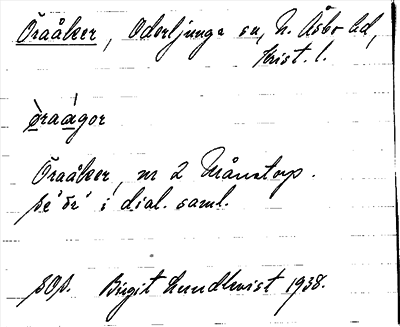 Öraåker, Oderljunga sn, N. Åsbo hd,
Krist. l.
òraágor
Öraåker, nr 2 Månstorp.
se "ör" i dial. saml.
sOp. Birgit Lundkvist 1938.